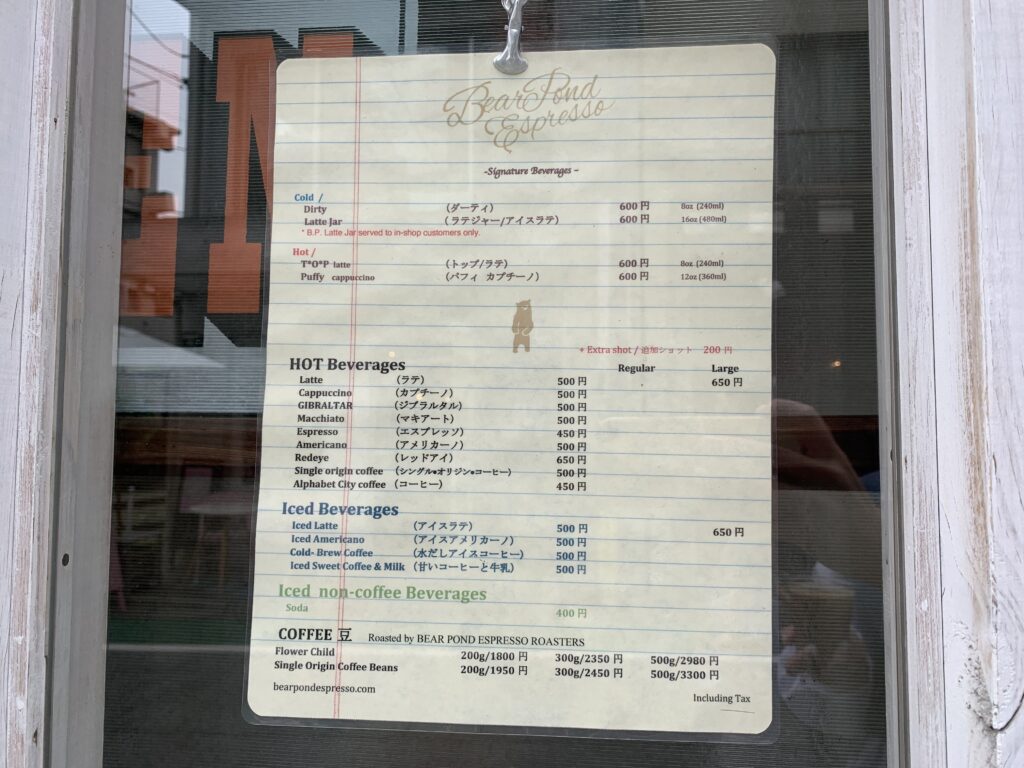 EN
Bear Pond
Espresso
-Signature Beverages -
Cold /
Dirty (ダーティ) 600 円 8oz (240ml)
Latte Jar (ラテジャー/アイスラテ) 600 円 16oz (480ml)
* B.P. Latte Jar served to in-shop customers only.
Hot /
T*O*P latte (トップ/ラテ) 600 円 8oz (240ml)
Puffy cappuccino (パフィ カプチーノ) 600 円 12oz (360ml)
+ Extra shot / 追加ショット 200 円
HOT Beverages Regular Large
Latte (ラテ) 500 円 650 円
Cappuccino (カプチーノ) 500 円
GIBRALTAR (ジブラルタル) 500 円
Macchiato (マキアート) 500 円
Espresso (エスプレッソ) 450 円
Americano (アメリカーノ) 500 円
Redeye (レッドアイ) 650 円
Single origin coffee (シングル•オリジン•コーヒー) 500 円
Alphabet City coffee (コーヒー) 450 円
Iced Beverages
Iced Latte (アイスラテ) 500 円 650 円
Iced Americano (アイスアメリカーノ) 500 円
Cold- Brew Coffee (水だしアイスコーヒー) 500 円
Iced Sweet Coffee & Milk (甘いコーヒーと牛乳) 500 円
Iced non-coffee Beverages
Soda 400 円
COFFEE 豆 Roasted by BEAR POND ESPRESSO ROASTERS
Flower Child 200g/1800 円 300g/2350 円 500g/2980 円
Single Origin Coffee Beans 200g/1950 円 300g/2450 円 500g/3300 円
bearpondespresso.com Including Tax